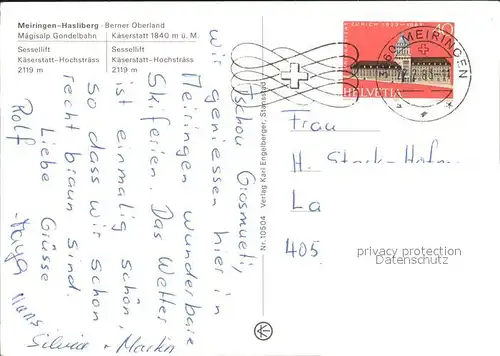 Meiringen-Hasliberg - Berner Oberland
Mägisalp Gondelbahn Käserstatt 1840 m ü. M.
Sessellift Sessellift
Käserstatt-Hochsträss Käserstatt-Hochsträss
2119 m 2119 m
Tschou Grosmueti,
wir geniessen hier in
Meiringen wunderbare
Skiferien. Das Wetter
ist einmalig schön,
so dass wir schon
recht braun sind.
Liebe Grüsse
Rolf
Maya
Hans
Silvia + Martin
Nr. 10504 Verlag Karl Engelberger, Stansstad
40
HELVETIA
MEIRINGEN
Frau
H.
La
405
privacy protection
Datenschutz